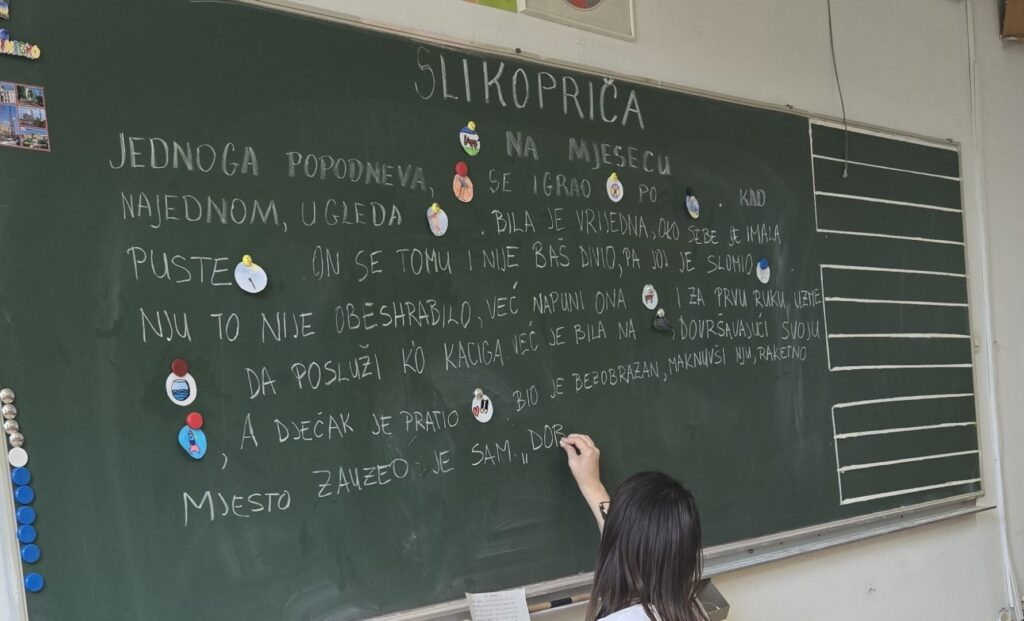 SLIKOPRIČA
NA MJESECU
JEDNOGA POPODNEVA, SE IGRAO PO . KAD
NAJEDNOM, UGLEDA . BILA JE VRIJEDNA, OKO SEBE JE IMALA
PUSTE . ON SE TOMU I NIJE BAŠ DIVIO, PA JOJ JE SLOMIO
NJU TO NIJE OBESHRABILO, VEĆ NAPUNI ONA I ZA PRVU RUKU, UZME
DA POSLUŽI K'O KACIGA. VEĆ JE BILA NA , DOVRŠAVAJUĆI SVOJU
, A DJEČAK JE PRATIO . BIO JE BEZOBRAZAN, MAKNUVŠI NJU, RAKETNO
MJESTO ZAUZEO JE SAM. „DOB